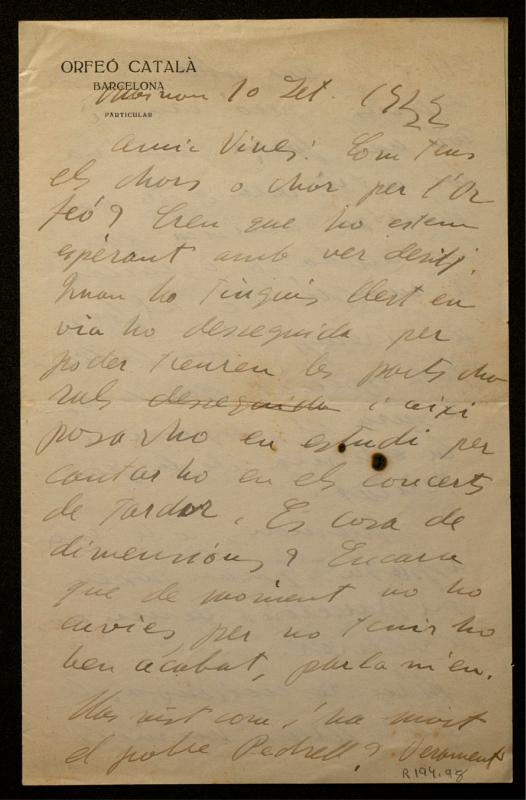 ORFEÓ CATALÀ
BARCELONA
PARTICULAR
10 Set. 1922
Amic Vives: Com tens
els chors o chor per l'Or
feó? Creu que ho estem
esperant amb ver desitj.
Quan ho tinguis llest en
via ho desseguida per
poder treuren les parts cho
rals desseguida i aixi
posarho en estudi per
cantarho en els concerts
de Tardor. Es cosa de
dimensións? Encara
que de moment no ho
envies, per no tenirho
ben acabat, parlam'en.
Has vist com s'ha mort
el pobre Pedrell? Verament
R194.98